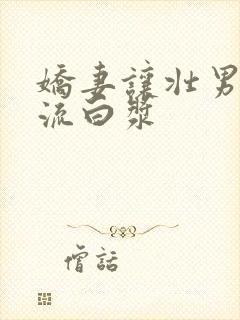 嬌妻讓壯男
流白漿
僧話